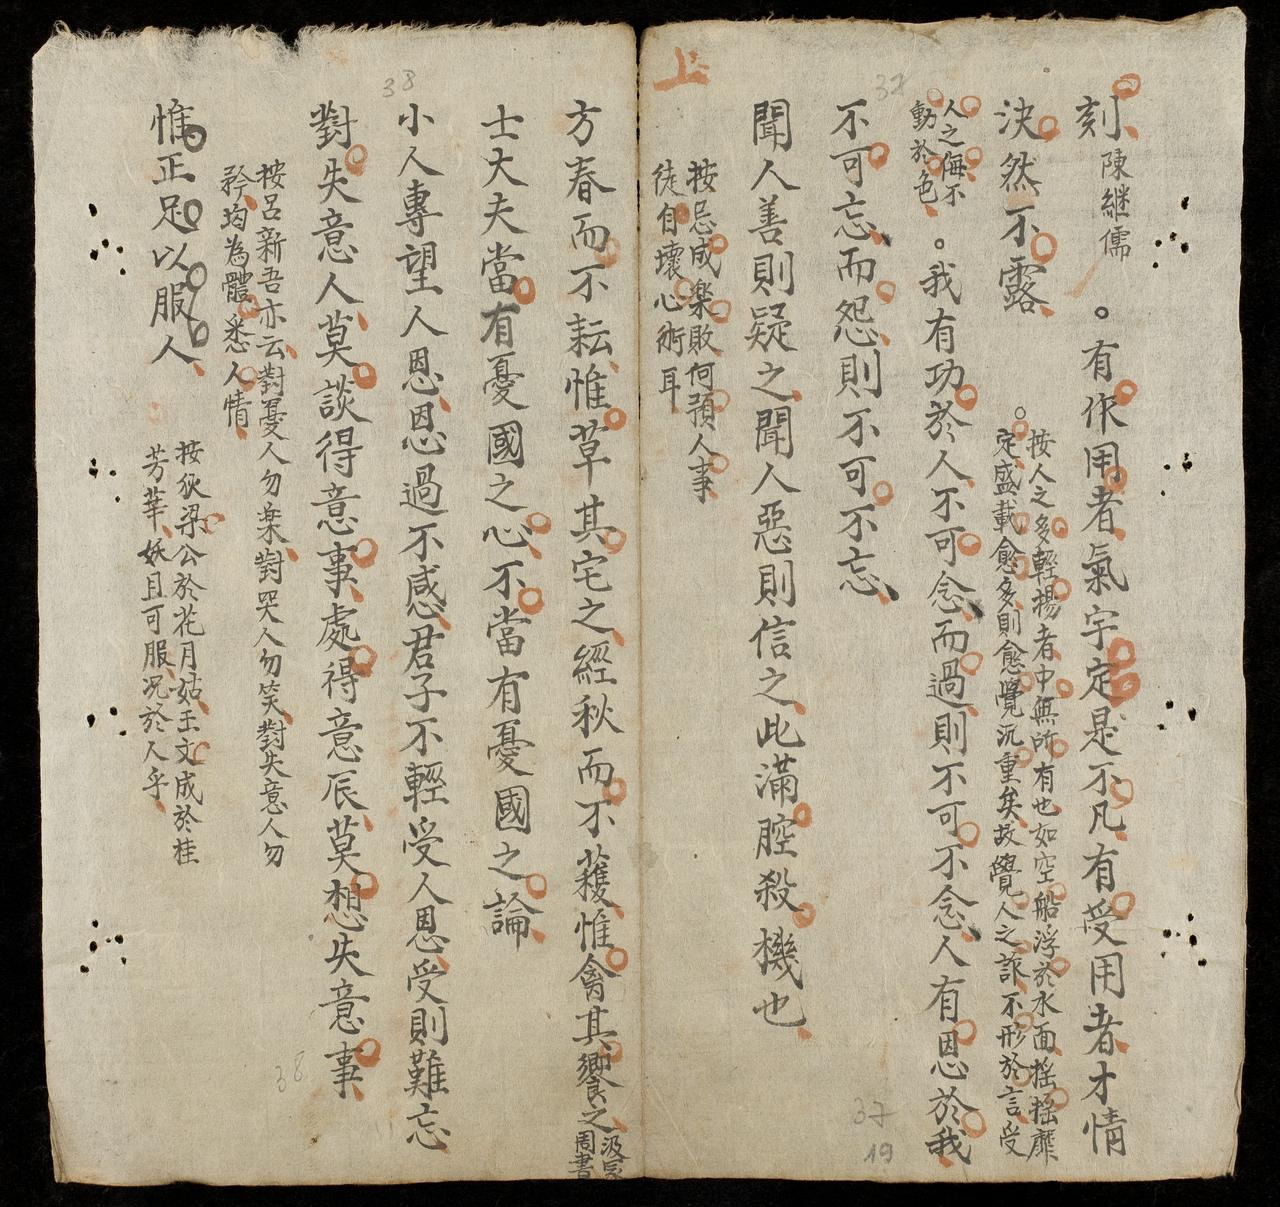 上
刻 陳継儒 。有作用者氣宇定是不凡有受用者才情
決然不露 。按人之多輕揚者中無所有也如空船浮於水面摇摇靡
定盛載愈多則愈覺沉重矣故覺人之詐不形於言受
人之侮不
動於色 。我有功於人不可念而過則不可不念人有恩於我
不可忘而怨則不可不忘
聞人善則疑之聞人惡則信之此滿腔殺機也
按忌成楽敗何預人事
徒自壊心術耳
方春而不耘惟草其宅之經秋而不穫惟禽其饗之 汲冡
周書
士大夫當有憂國之心不當有憂國之論
小人專望人恩恩過不感君子不輕受人恩受則難忘
對失意人莫談得意事處得意辰莫想失意事
按呂新吾亦云對憂人勿楽對哭人勿笑對失意人勿
矜均為體悉人情
惟正足以服人 按狄梁公於花月姑王文成於桂
芳華妖且可服况於人乎
37
37
19
38
38